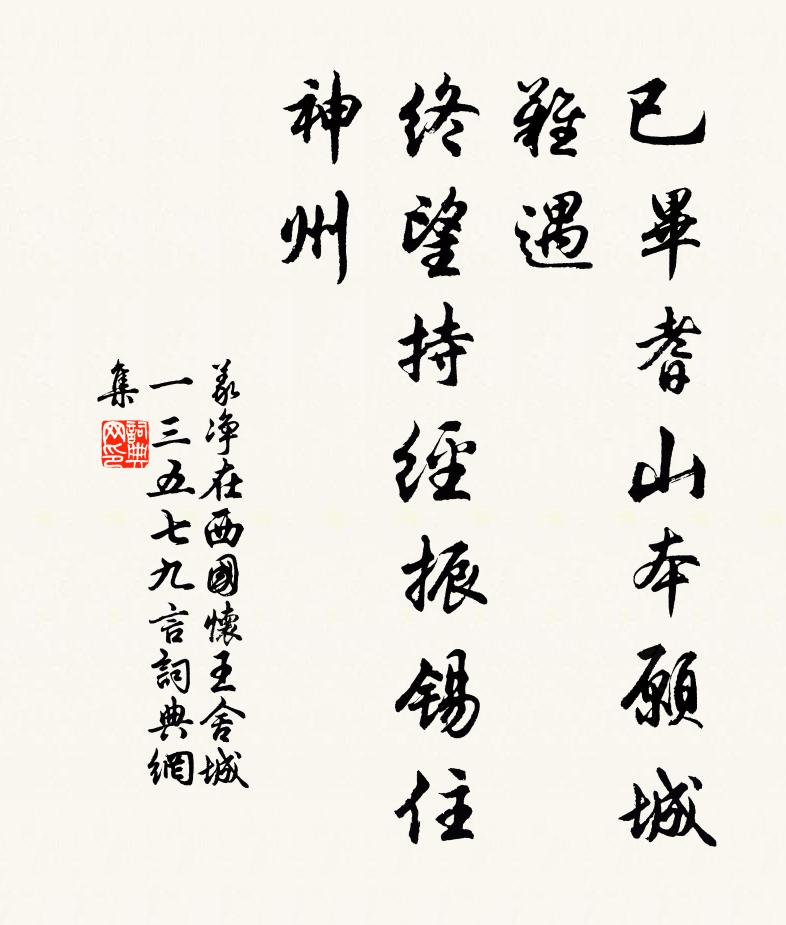 已畢耆山本願城
難遇
終望持經振錫住
神州
義淨在西國懷王舍城
一三五七九言詞典網
集
詞典网印